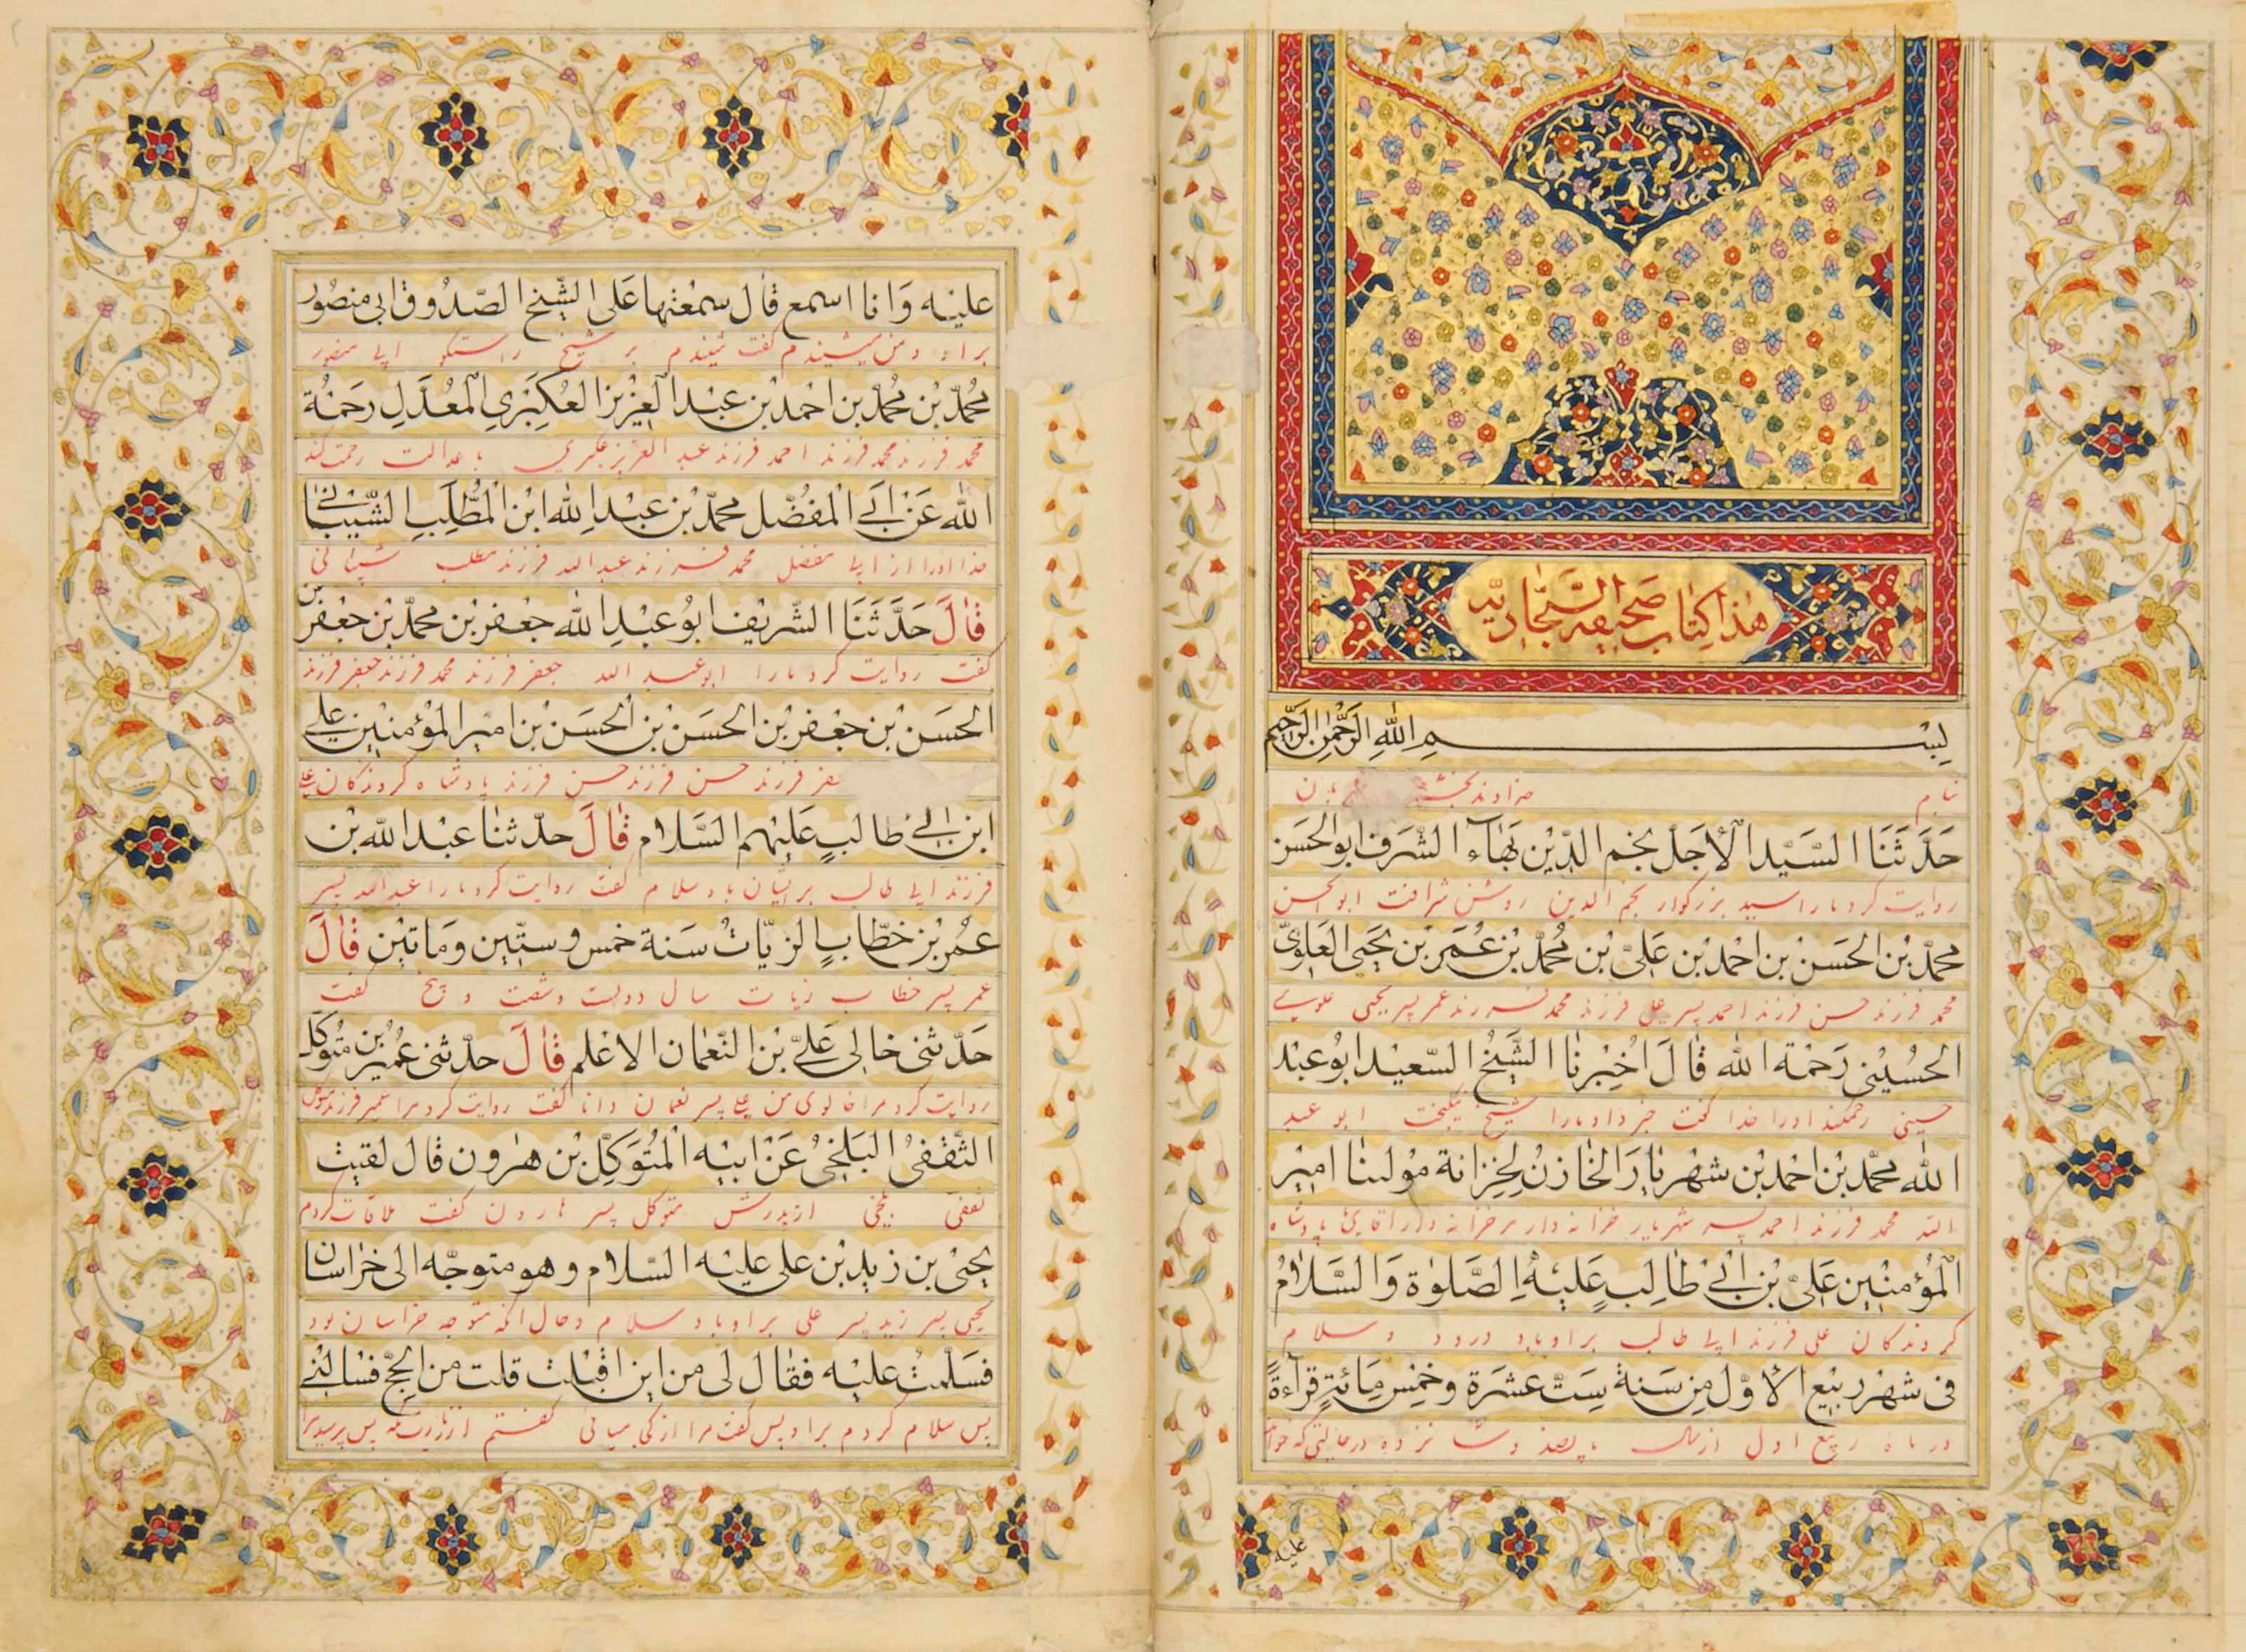 هٰذا كِتاب صَحيفه السَّجّاديّه
بِسْمِ اللهِ الرَّحْمٰنِ الرَّحيم
بنام خداوند
حَدَّثَنَا السَّيّد الْأَجَلّ نجم الدّيْن بَهَاۤء الشَرَف ابو الحَسَن
روايت كرد مارا سيد بزركوار نجم الدين روشنى شرافت ابو الحسن
محمّد بْن الحَسَنْ بن احْمد بْن عَلىّ بْن مُحمّد بْن عُمَر بْن يَحْيَى العَلَوىّ
محمد فرزند حسن فرزند احمد پسر على فرزند محمد فرزند عمر پسر يحيى علوى
الحُسَيْنى رَحمَة اللّٰه قٰالَ اُخْبِرنٰا الشَّيْخُ السّعيْد ابُو عبْد
حسينى رحمكند اورا خدا كفت خبر داد مارا شيخ نيكبخت ابو عبد
اللّٰه محمّد بْن احْمد بْن شهْريٰار الخٰازنُ لِخِزٰانة موْلٰينٰا اميْر
الله محمد فرزند احمد پسر شهريار خزانه دار مر خزانه دار اقاى پادشاه
الْمُؤمنْيْن عَلىّ بْن اَبىْ طٰالِبٍ عَلَيْهِ الصَّلوٰة وَ السَّلٰامُ
كروندكان على فرزند ابى طالب بر او باد درود و سلام
فى شهْر ربيْع الْأوّل مِن سَنة سِتّ عشَرَة و خمْسِ مِائةٍ قراۤءةً
در ماه ربيع اول از سال پانصد و شانزده در حالتى كه خوانده
عليه
عليْه وَ انا اسمع قٰال سمعْتها عَلى الشّيخ الصّدُوق ابى منصُور
بر او و من ميشنيدم كفت شنيدم بر شيخ راستكو ابى منصور
مُحمّد بْن مُحمّد بن احْمد بْن عبْد الْعزيْز العُكبَرى الْمعَدَّلِ رَحمَهُ
محمد فرزند محمد فرزند احمد فرزند عبد العزيز عكبرى با عدالت رحمت كند
اللّٰه عَنْ اَبى الْمفُضّل محمّد بْن عبْد اللّٰه ابْن الْمُطّلِب الشّيْبٰانى
خدا اورا از ابى مفضل محمد فرزند عبد الله فرزند مطلب شيبانى
قٰالَ حَدَّثَنَا الشّريْف ابُو عبْدِ اللّٰه جعْفر بْن محمّد بْن جعْفر بن
كفت روايت كرد مارا ابو عبد الله جعفر فرزند محمد فرزند جعفر فرزند
الحَسَنْ بْن جعْفر بْن الحَسَنْ بْن الحَسَنْ بْن اميْر الْمؤمنيْن على
جعفر فرزند حسن فرزند حسن فرزند پادشاه كروندكان على
ابن ابىْ طالبٍ عَلَيْهم السَّلام قٰالَ حدّثنٰا عبْد اللّٰه بْن
فرزند ابى طالب بر ايشان باد سلام كفت روايت كرد مارا عبد الله پسر
عمُر بْن خَطّابٍ الزيّاتُ سَنة خمس و ستّين و مَاتيْن قٰالَ
عمر پسر خطاب زيات سال دويست و شصت و پنج كفت
حَدّثنى خالى عَلىّ بْن النّعْمٰان الاعْلم قٰالَ حدّثنى عُميْر بْن متُوكّل
روايت كرد مرا خالوى من على پسر نعمان دانا كفت روايت كرد مرا عمير فرزند متوكل
الثّقفىُ البَلخىُ عَنْ ابيْه الْمُتُوَكِّل بْن هٰرون قٰال لقيت
ثقفى بلخى از پدرش متوكل پسر هارون كفت ملاقات كردم
يحيْى بن زيْد بْن على عليْه السّلام و هو متوجّه الى خٰراسان
يحيى پسر زيد پسر على بر او باد سلام و حال آنكه متوجه خراسان بود
فسَلّمت عليْه فقٰال لى من اين اقبْلت قلت من الحجّ فسٰالنى
پس سلام كردم بر او پس كفت مرا از كجا ميائى كفتم از زيارت مكه پس پرسيد مرا